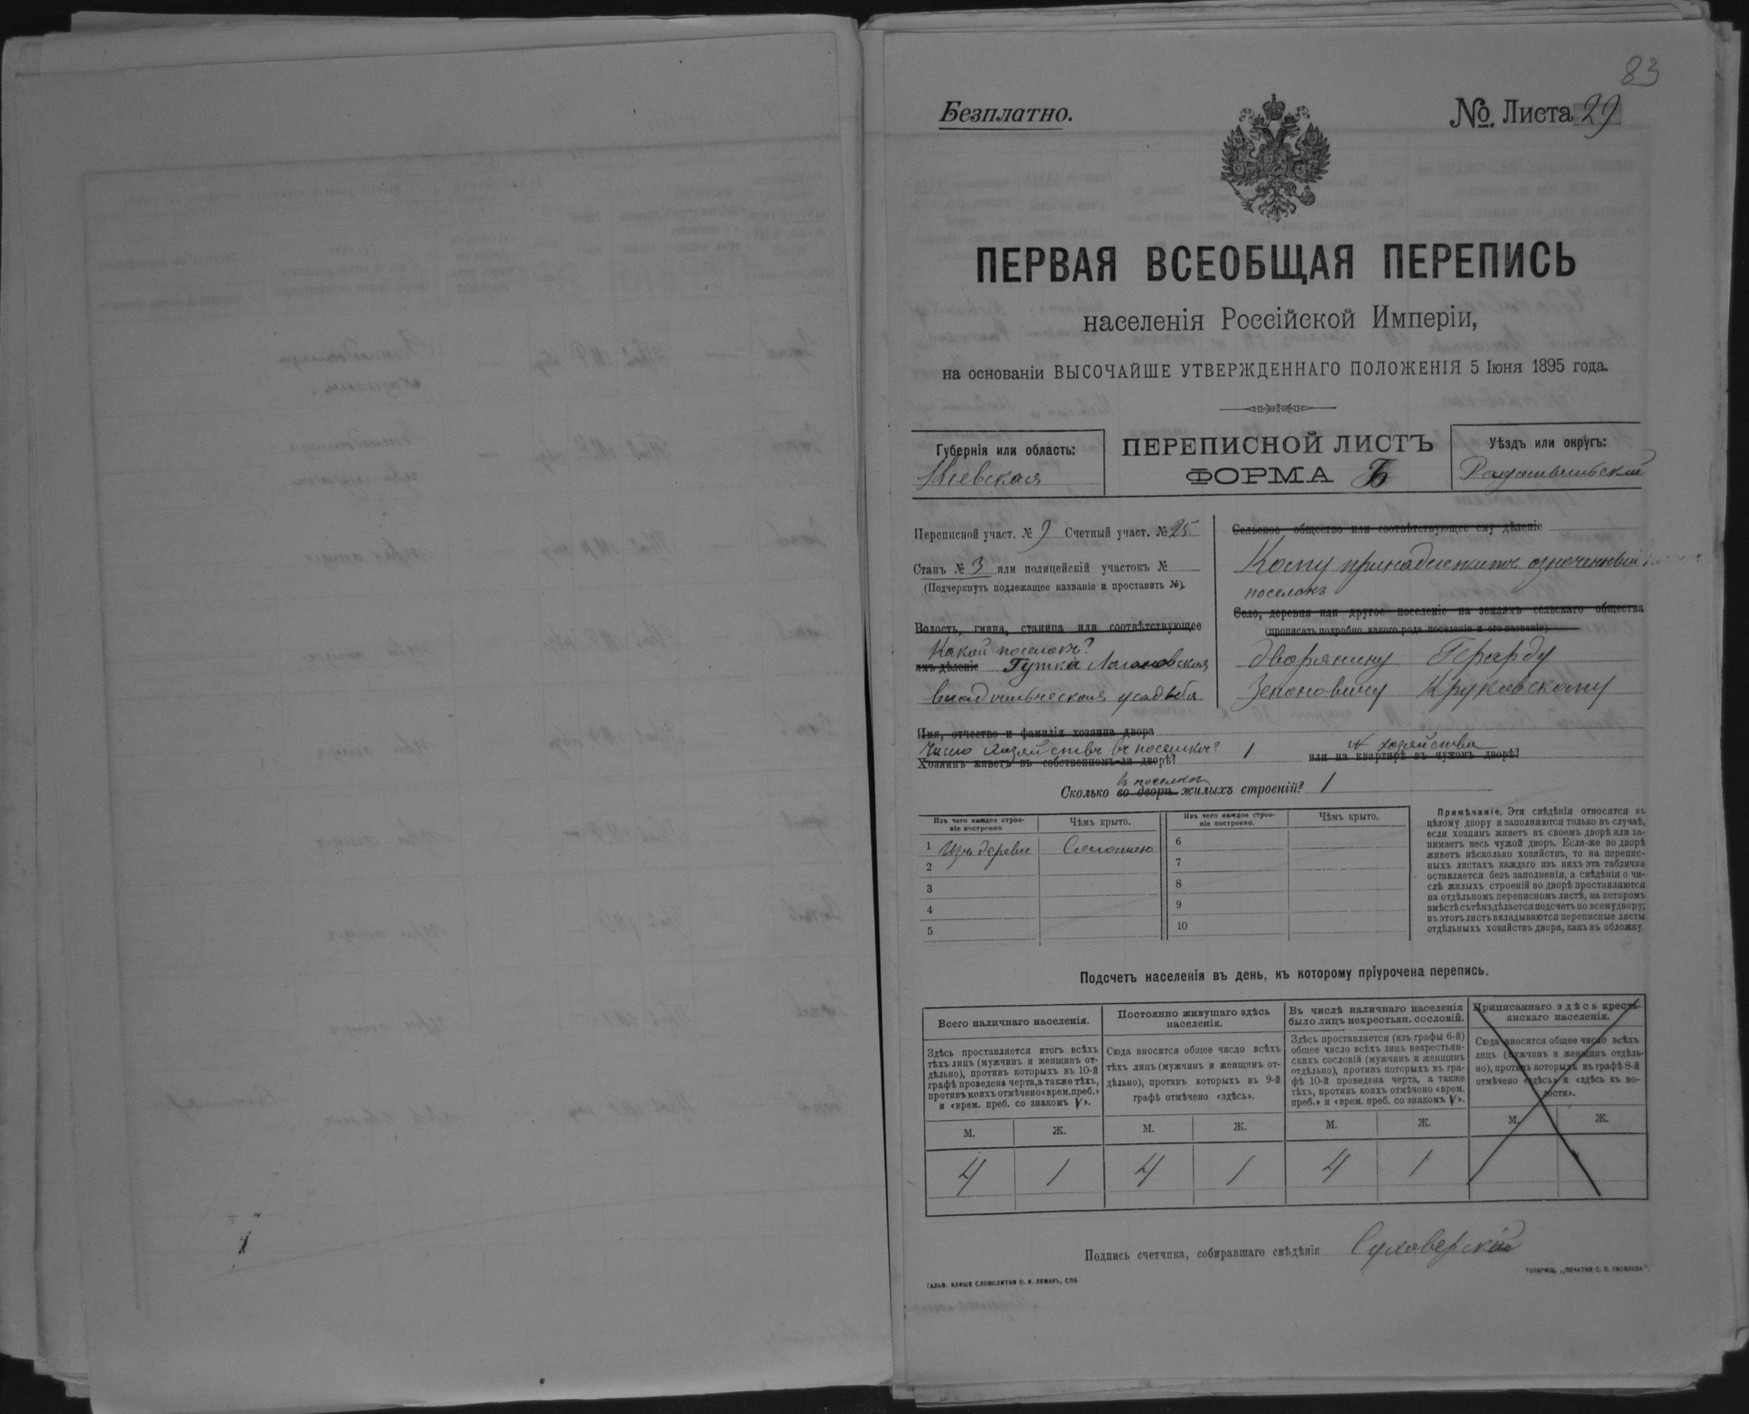 83
Безплатно.
№. Листа 29
ПЕРВАЯ ВСЕОБЩАЯ ПЕРЕПИСЬ
населенія Россійской Имперіи,
на основаніи ВЫСОЧАЙШЕ УТВЕРЖДЕННАГО ПОЛОЖЕНІЯ 5 Іюня 1895 года.
Губернія или область:
Кіевская
ПЕРЕПИСНОЙ ЛИСТЪ
ФОРМА Б
Уѣздъ или округъ:
Радомысльскій
Переписной участ. № 9 Счетный участ. № 25
Станъ № 3 или полицейскій участокъ №
(Подчеркнуть подлежащее названіе и проставить №).
Волость, гмина, станица или соотвѣтствующее
Какой поселокъ?
имъ дѣленіе Гутка Логановская
владѣльческая усадьба
Сельское общество или соотвѣтствующее ему дѣленіе
Кому принадлежитъ означенный
поселокъ
Село, деревня или другое поселеніе на земляхъ сельскаго общества
(прописать подробно какого рода поселеніе и его названіе)
Дворянину Герарду
Зеноновичу Круковскому
Имя, отчество и фамилія хозяина двора
Число хозяйствъ въ поселкѣ? 1 № хозяйства
Хозяинъ живетъ въ собственномъ-ли дворѣ? или на квартирѣ въ чужомъ дворѣ?
въ поселкѣ
Сколько во дворѣ жилыхъ строеній? 1
Изъ чего каждое строе-
ніе построено
Чѣмъ крыто.
Изъ чего каждое строе-
ніе построено.
Чѣмъ крыто.
1 Изъ дерева Соломою
2
3
4
5
6
7
8
9
10
Примѣчаніе. Эти свѣдѣнія относятся къ
цѣлому двору и заполняются только въ случаѣ,
если хозяинъ живетъ въ своемъ дворѣ или за-
нимаетъ весь чужой дворъ. Если-же во дворѣ
живетъ нѣсколько хозяйствъ, то на перепис-
ныхъ листахъ каждаго изъ нихъ эта табличка
оставляется безъ заполненія, а свѣдѣнія о чи-
слѣ жилыхъ строеній во дворѣ проставляются
на отдѣльномъ переписномъ листѣ, на которомъ
вмѣстѣ съ тѣмъ дѣлается подсчетъ по всему двору;
въ этотъ листъ вкладываются переписные листы
отдѣльныхъ хозяйствъ двора, какъ въ обложку.
Подсчетъ населенія въ день, къ которому пріурочена перепись.
Всего наличнаго населенія.
Здѣсь проставляется итогъ всѣхъ
тѣхъ лицъ (мужчинъ и женщинъ от-
дѣльно), противъ которыхъ въ 10-й
графѣ проведена черта, а также тѣхъ,
противъ коихъ отмѣчено «врем. преб.»
и «врем. преб. со знакомъ V».
Постоянно живущаго здѣсь
населенія.
Сюда вносится общее число всѣхъ
тѣхъ лицъ (мужчинъ и женщинъ от-
дѣльно), противъ которыхъ въ 9-й
графѣ отмѣчено «здѣсь».
Въ числѣ наличнаго населенія
было лицъ некрестьян. сословій.
Здѣсь проставляется (изъ графы 6-й)
общее число всѣхъ лицъ некрестьян-
скихъ сословій (мужчинъ и женщинъ
отдѣльно), противъ которыхъ въ гра-
фѣ 10-й проведена черта, а также
тѣхъ, противъ коихъ отмѣчено «врем.
преб.» и «врем. преб. со знакомъ V».
Приписаннаго здѣсь кресть-
янскаго населенія.
Сюда вносится общее число всѣхъ
лицъ (мужчинъ и женщинъ отдѣль-
но), противъ которыхъ въ графѣ 8-й
отмѣчено «здѣсь» и «здѣсь въ во-
лости».
М. Ж. М. Ж. М. Ж. М. Ж.
4 1 4 1 4 1
Подпись счетчика, собиравшаго свѣдѣнія Суховерскій
ГАЛЬВ. КЛИШЕ СЛОВОЛИТНИ О. И. ЛЕМАНЪ, СПБ.
ТОВАРИЩ. „ПЕЧАТНЯ С. П. ЯКОВЛЕВА“.